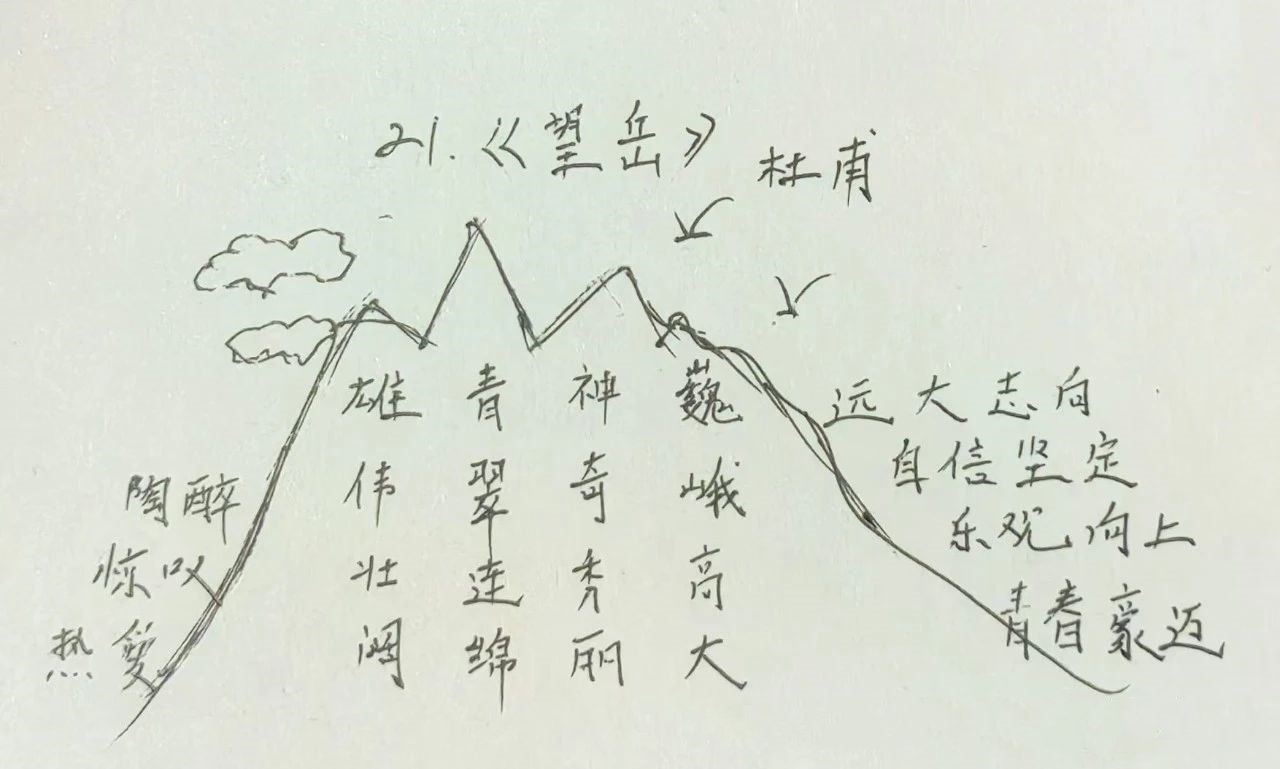 21.《望岳》
杜甫
雄伟壮阔
青翠连绵
神奇秀丽
巍峨高大
陶醉
惊叹
热爱
远大志向
自信坚定
乐观向上
青春豪迈